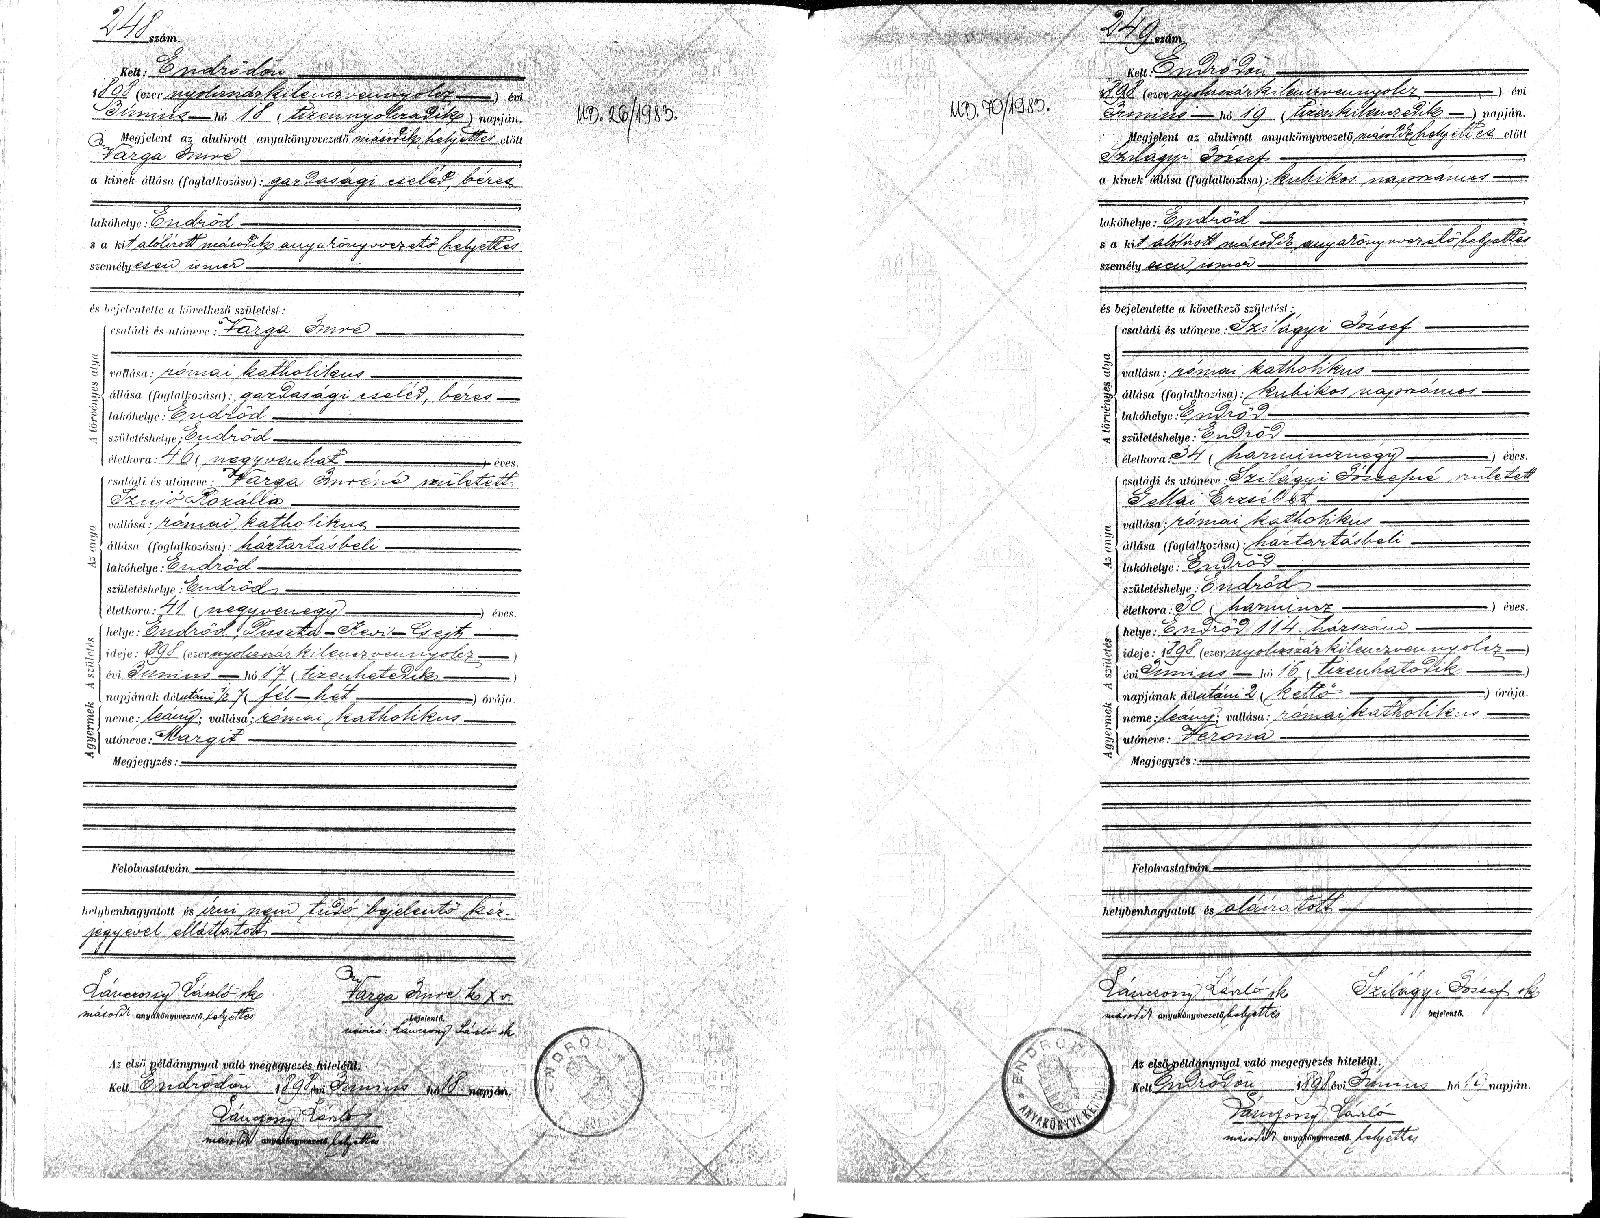 248 szám.
Kelt: Endrődön
1898 (ezer nyolcszázkilenczvennyolcz) évi
Június hó 18 (tizennyolczadik) napján.
Megjelent az alulirott anyakönyvvezető második helyettes előtt
Varga Imre
a kinek állása (foglalkozása): gazdasági cseléd, béres
lakóhelye: Endrőd
s a kit alólirott második anyakönyvvezető helyettes
személyesen ismer
és bejelentette a következő születést:
A törvényes atya
családi és utóneve: Varga Imre
vallása: római katholikus
állása (foglalkozása): gazdasági cseléd, béres
lakóhelye: Endrőd
születéshelye: Endrőd
életkora: 46 (negyvenhat) éves.
Az anya
családi és utóneve: Varga Imréné született
Szujó Rozália
vallása: római katholikus
állása (foglalkozása): háztartásbeli
lakóhelye: Endrőd
születéshelye: Endrőd
életkora: 41 (negyvenegy) éves.
A születés
helye: Endrőd, Puszta-Kevi-Csejt
ideje: 1898 (ezer nyolcszázkilenczvennyolcz)
évi Június hó 17 (tizenhetedik)
napjának délutáni 1/2 7 (fél-hét) órája.
A gyermek
neme: leány; vallása: római katholikus
utóneve: Margit
Megjegyzés:
Felolvastatván
helybenhagyatott és irni nem tudó bejelentő kéz-
jegyével elláttatott
Lánczony László sk
második anyakönyvvezető helyettes
Varga Imre k x v.
bejelentő.
névíró: Lánczony László sk
Az első példánynyal való megegyezés hiteléül.
Kelt Endrődön 1898 évi Június hó 18 napján.
Lánczony László
második anyakönyvvezető helyettes
ENDRŐD
UB. 26/1983.
249 szám.
Kelt: Endrődön
1898 (ezer nyolcszázkilenczvennyolcz) évi
Június hó 19 (tizenkilenczedik) napján.
Megjelent az alulirott anyakönyvvezető, második helyettes előtt
Szilágyi József
a kinek állása (foglalkozása): kubikos napszámos
lakóhelye: Endrőd
s a kit alólirott második anyakönyvvezető helyettes
személyesen ismer
és bejelentette a következő születést:
A törvényes atya
családi és utóneve: Szilágyi József
vallása: római katholikus
állása (foglalkozása): kubikos napszámos
lakóhelye: Endrőd
születéshelye: Endrőd
életkora: 34 (harmincznégy) éves.
Az anya
családi és utóneve: Szilágyi Józsefné született
Gellai Erzsébet
vallása: római katholikus
állása (foglalkozása): háztartásbeli
lakóhelye: Endrőd
születéshelye: Endrőd
életkora: 30 (harmincz) éves.
A születés
helye: Endrőd 114 házszám
ideje: 1898 (ezer nyolcszázkilenczvennyolcz)
évi Június hó 16 (tizenhatodik)
napjának délutáni 2 (kettő) órája.
A gyermek
neme: leány; vallása: római katholikus
utóneve: Verona
Megjegyzés:
Felolvastatván
helybenhagyatott és aláiratott
Lánczony László sk
második anyakönyvvezető helyettes
Szilágyi József sk
bejelentő.
Az első példánynyal való megegyezés hiteléül.
Kelt Endrődön 1898 évi Június hó 19 napján.
Lánczony László
második anyakönyvvezető helyettes
ENDRŐD
ANYAKÖNYVI KERÜLET
UB. 70/1983.